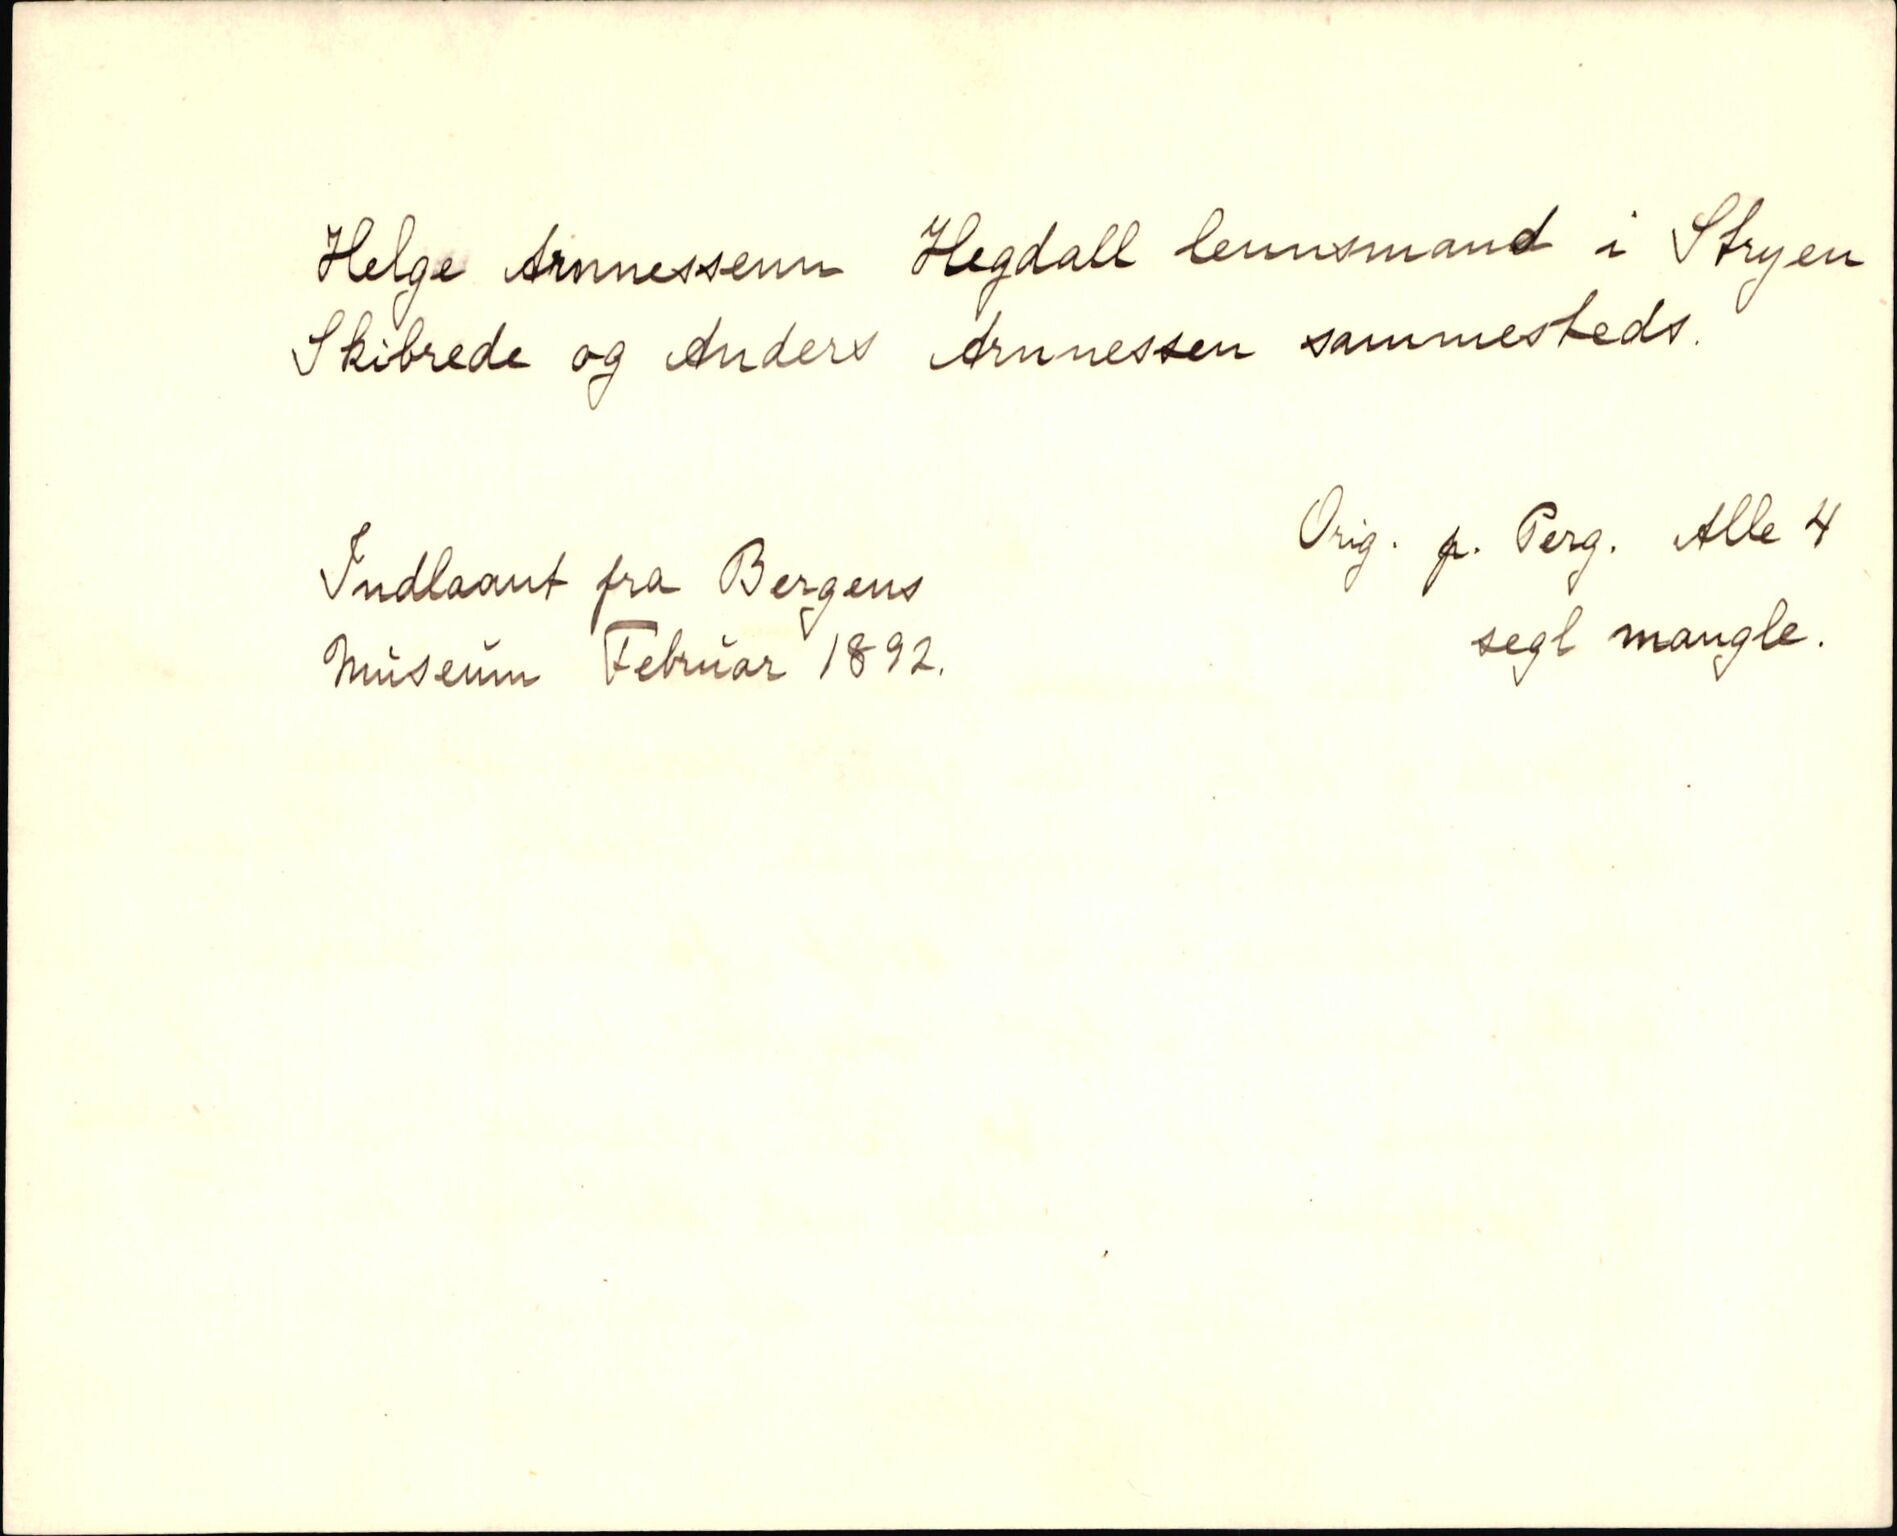 Helge Arnnessenn Hegdall lennsmand i Stryen
Skibrede og Anders Arnnessen sammesteds.
Orig. p. Perg. Alle 4
segl mangle.
Indlaant fra Bergens
Museum Februar 1892.